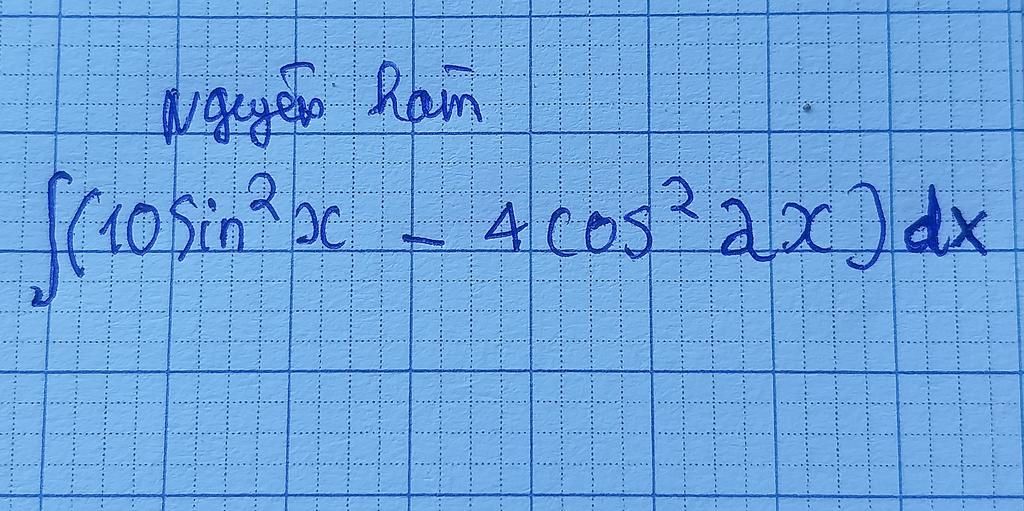 Nguyên hàm
∫(10 sin² x - 4 cos² 2x) dx